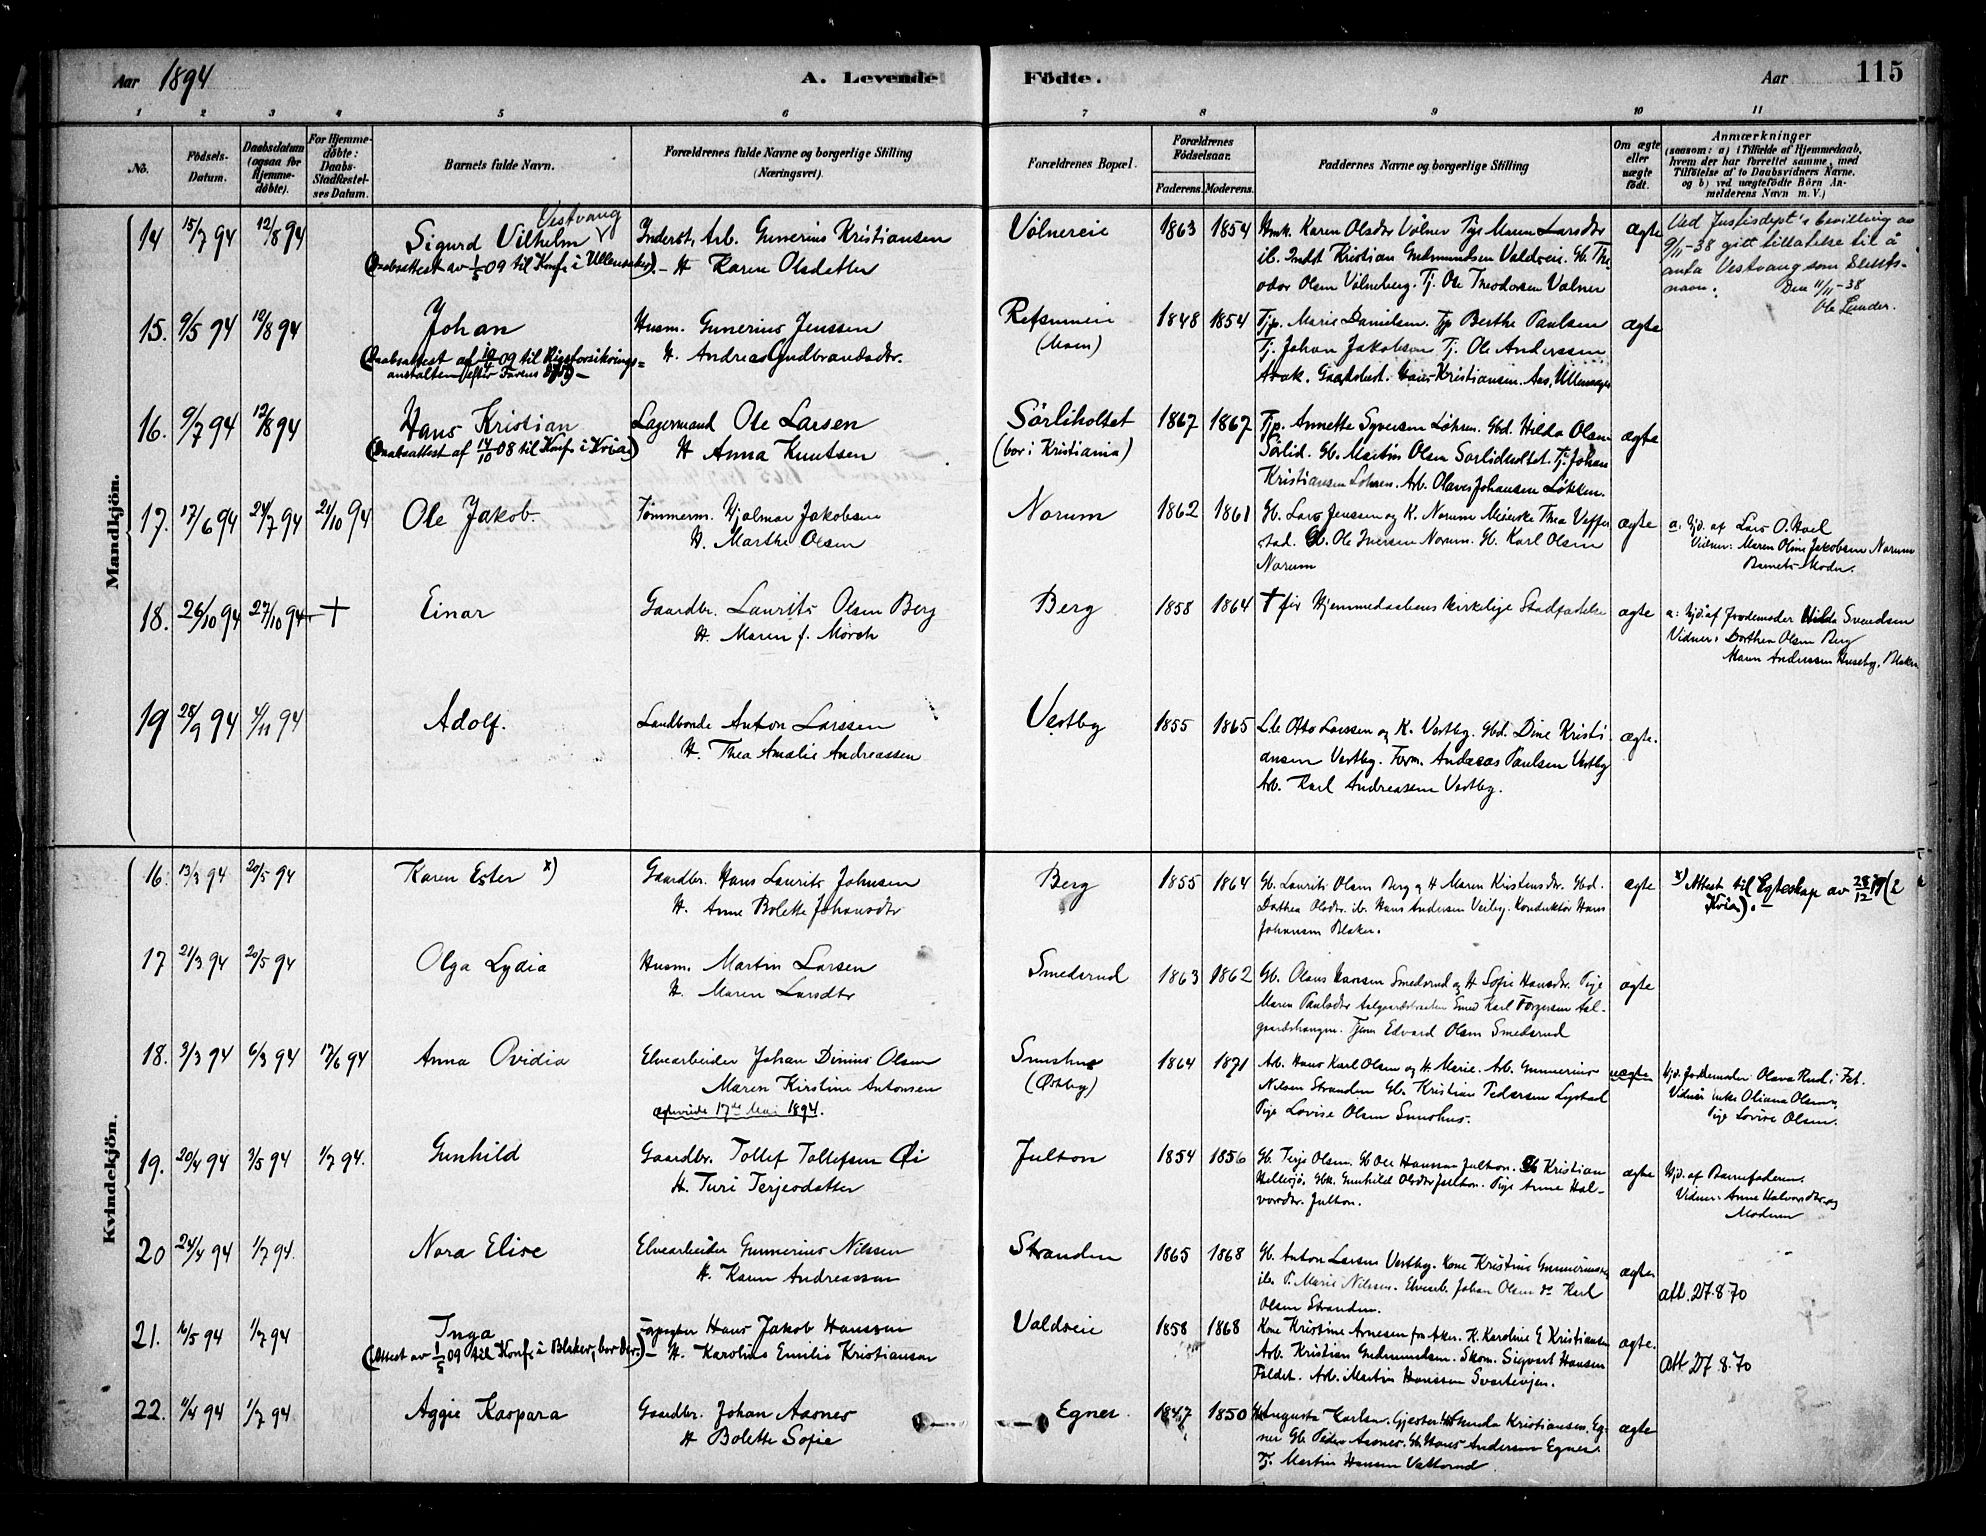 Aar 1894 A. Levende Fødte. Aar 115
1 2 3 4 5 6 7 8 9 10 11
No.
Fødsels-Datum.
Daabsdatum (ogsaa for Hjemme-døbte).
For Hjemme-døbte: Daabs-Stadfæstel-ses Datum.
Barnets fulde Navn.
Forældrenes fulde Navne og borgerlige Stilling (Næringsvei).
Forældrenes Bopæl.
Forældrenes Fødselsaar.
Faderens. Moderens.
Faddernes Navne og borgerlige Stilling
Om ægte eller uægte født.
Anmærkninger
(saasom: a) i Tilfælde af Hjemmedaab,
hvem der har forrettet samme, med
Tilføielse af to Daabsvidners Navne.
og b) ved uægtefødte Børn An-
melderens Navn m. V.)
Mandkjön.
14 15/7 94 12/8 94 Sigurd Vilhelm Vestvang
(Daabsattest av 1/5 09 til Konf. i Ullensaker)
Inderst, Arb. Gunerius Kristiansen
H. Karen Olsdatter
Vølnereie 1863 1854
Karen Olsdtr Vølner Pige Maren Larsdtr
ib. Indst Kristian Gudmundsen Valdreie. Gb. The-
odor Olsen Vølneberg. Tj. Ole Theodorsen Vølner
ægte
Ved Justisdept's bevilling av
9/11-38 gitt tillatelse til å
anta Vestvang som slekts-
navn. Den 11/11-38
15. 9/5 94 12/8 94 Johan
(Daabsattest af 19/4 09 til Rigsforsikrings-
anstalten
Husm. Gunerius Jenssen
H. Andrea Gudbrandsdtr.
Refsumeie
(Moen)
1848 1854
Tjp. Marie Danielsen. Tjp Berthe Paulsen
Tj. Johan Jakobsen Tj. Ole Anderssen
Kristiansen. Aas, Ullensager
ægte
16. 9/7 94 12/8 94 Hans Kristian
(Daabsattest af 14/10 08 til Konf. i Kria)
Lagermand Ole Larsen
H Anna Knutsen
Sørliholtet
(bor i Kristiania)
1867 1867
Tjp. Annette Syversen Løkren. Gbd. Hilda Olsen
Sørlid. Gb. Martin Olsen Sørlieholtet. Tj. Johan
Kristiansen Arb. Olaves Johansen Løkken.
ægte
17. 17/6 94 24/7 94 21/10 94 Ole Jakob.
Tømmerm. Hjalmar Jakobsen
H. Marthe Olsen
Norum 1862 1861
Gb. Lars Jenssen og K. Norum Meierske Thea Veffer
stad. Gb. Ole Iversen Norum. Gb. Karl Olsen
Norum
ægte
a: Hjd. af Lars O. Hoel
Vidner: Maren Oline Jakobsen Norum
Barnets Moder.
18. 26/10 94 27/10 94 + Einar
Gaardbr. Laurits Olsen Berg
H. Maren f. Mørch
Berg 1858 1864
† før Hjemmedaabens kirkelige Stadfæstelse
ægte
a: Hjd. af Jordemoder Hilda Svendsen
Vidner: Dorthea Olsen Berg
Maren Anderssen Huseby, Blaker
19 28/9 94 4/11 94 Adolf.
Landbonde Anton Larssen
H. Thea Amalie Andreassen
Vestby 1855 1865
Lb. Otto Larssen og K. Vestby. Gbd. Dine Kristi
ansen Vestby. Form. Andreas Paulsen Vestby
Arb. Karl Andreassen Vestby.
ægte.
Kvindekjön.
16. 13/3 94 20/5 94 Karen Ester x)
Gaardbr. Hans Laurits Johnsen
H. Anne Bolette Johansdtr
Berg 1855 1864
Gb. Laurits Olsen Berg og H Maren Kristensdtr. Gbd.
Dorthea Olsdtr. ib. Hans Andersen Veiby. Konduktør Hans
Johansen Blaker.
ægte
x) Attest til Egteskap av 28/12 19 (2
Kria).
17 21/3 94 20/5 94 Olga Lydia
Husm. Martin Larsen
H. Maren Larsdtr
Smedsrud 1863 1862
Gb. Olaus Hansen Smedsrud og H Sofie Hansdtr. Pige
Maren Paulsdtr Smed Karl Torgersen Aal-
gaardshaugen. Tjener Edvard Olsen Smedsrud
ægte
18. 3/3 94 6/3 94 17/6 94 Anna Ovidia
Elvearbeider Johan Dinius Olsen
Maren Kirstine Antonsen
17de Mai 1894.
Smushus
(Østby)
1864 1871
Arb. Hans Karl Olsen og H. Marie. Arb. Gunnerius
Nilsen Stranden Gb. Kristian Pedersen Lystad
Pige Lovise Olsen Smushus.
uægte
Hjd. Jordemoder Olava Rud i Fet.
Vidner: Enke Oliana Olsen,
Pige Lovise Olsen.
19. 20/4 94 3/5 94 1/7 94. Gunhild
Gaardbr. Tollef Tollefsen Øi
H. Turi Terjesdatter
Julton 1854 1856
Gb. Terje Olsen. Gb Ole Hanssen Julton. Gb Kristian
Hellesjø, Gbk. Gunhild Olsdtr Julton. Pige Anne Hal-
vorsdtr. Julton.
ægte
Hjd. af Barnefaderen.
Vidner: Anne Halvorsdtr. og
Moderen
20 24/4 94 1/7 94. Nora Elise
Elvearbeider Gunnerius Nilssen
H. Karen Andreassen
Stranden 1865 1868
Gb. Anton Larsen Vestby. Kone Kristine Gunneriussen
ib. P. Marie Nilsen. Elvearb. Johan Olsen do Karl
Olsen Stranden.
ægte
att. 27.8.70
21. 16/5 94 1/7 94 Inga
(Attest av 1/5 09 til Konf. i Blaker, bor der.)
Forpagter Hans Jakob Hanssen
H. Karoline Emilie Kristiansen
Valdreie 1858 1868
Kone Kristine Arnesen fra Aker. K. Karoline E Kristiansen
Arb. Kristian Gudmundsen. Skom. Sigvart Hansen
Faldet. Arb. Martin Hanssen Svartevjen.
ægte.
att. 27.8.70
22. 11/4 94 1/7 94 Aggie Kaspara
Gaardbr. Johan Aasnes
H Bolette Sofie
Egner. 1847 1850
Augusta Karlsen. Kristiansen. Eg-
ner Gb. Peder Aasnes. Gb Hans Andersen Egner.
Tj. Martin Hansen Vallerud
ægte